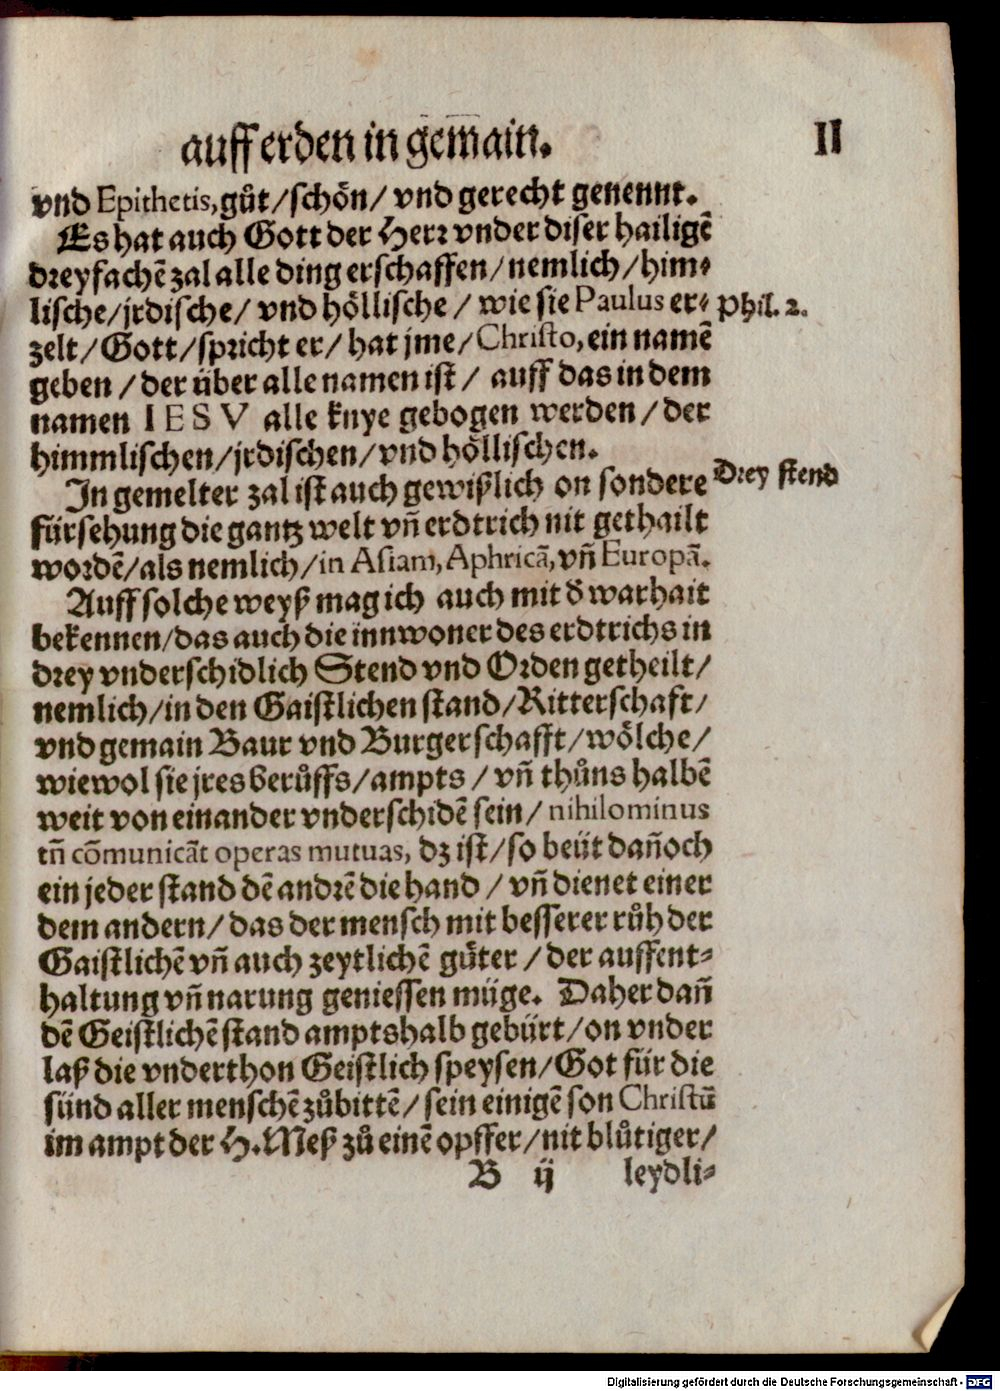 auff erden in gemain. II
vnd Epithetis, gůt/schön/ vnd gerecht genennt.
Es hat auch Gott der Herr vnder diser hailigē
dreyfachē zal alle ding erschaffen/nemlich/him⸗
lische/jrdische/ vnd höllische / wie sie Paulus er⸗ Phil. 2.
zelt/Gott/spricht er/ hat jme/Christo, ein namē
geben / der über alle namen ist / auff das in dem
namen IESV alle knye gebogen werden/ der
himmlischen/jrdischen/vnd höllischen.
In gemelter zal ist auch gewißlich on sondere Drey stend
fürsehung die gantz welt vñ erdtrich nit gethailt
wordē/als nemlich/in Asiam, Aphricā, vñ Europā.
Auff solche weyß mag ich auch mit ð warhait
bekennen/das auch die innwoner des erdtrichs in
drey vnderschidlich Stend vnd Orden getheilt/
nemlich/in den Gaistlichen stand/Ritterschaft/
vnd gemain Baur vnd Burgerschafft/wölche/
wiewol sie jres berůffs/ampts / vñ thůns halbē
weit von einander vnderschidē sein/ nihilominus
tñ cōmunicāt operas mutuas, dz ist/so beüt dañoch
ein jeder stand dē andrē die hand / vñ dienet einer
dem andern/das der mensch mit besserer růh der
Gaistlichē vñ auch zeytlichē gůter / der auffent⸗
haltung vñ narung geniessen müge. Daher dañ
dē Geistlichē stand amptshalb gebürt/on vnder
laß die vnderthon Geistlich speysen/Got für die
sünd aller menschē zůbittē/sein einigē son Christū
im ampt der H. Meß zů einē opffer/nit blůtiger/
B ij leydli⸗
Digitalisierung gefördert durch die Deutsche Forschungsgemeinschaft - DFG